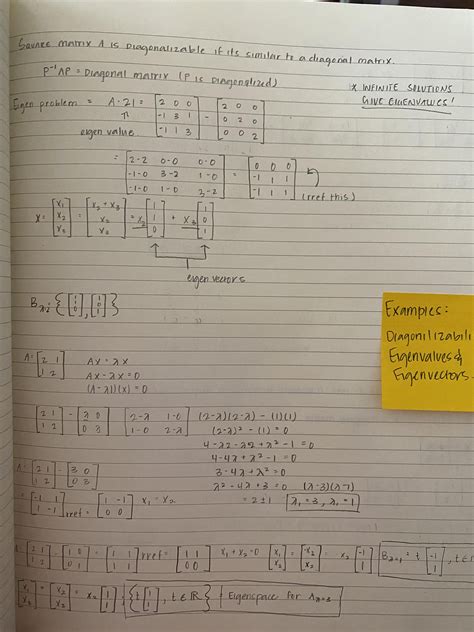 Square matrix A is Diagonalizable if its similar to a diagonal matrix.
P⁻¹AP = Diagonal matrix (P is Diagonalized)
* INFINITE SOLUTIONS
GIVE EIGENVALUES!
Eigen problem = A - 2I = [2 0 0; -1 3 1; -1 1 3] - [2 0 0; 0 2 0; 0 0 2]
eigen value
= [2-2 0-0 0-0; -1-0 3-2 1-0; -1-0 1-0 3-2] = [0 0 0; -1 1 1; -1 1 1]
(rref this)
X = [x₁; x₂; x₃] = [x₂ + x₃; x₂; x₃] = x₂ [1; 1; 0] + x₃ [1; 0; 1]
eigen vectors
Examples:
Eigenvalues &
Eigenvectors.
A = [2 1; 1 2] AX = λX
AX - λX = 0
(A - λI)(X) = 0
[2-λ 1-0; 1-0 2-λ] (2-λ)(2-λ) - (1)(1)
(2-λ)² - (1) = 0
4-2λ-2λ+λ²-1 = 0
4-4λ+λ²-1 = 0
3-4λ+λ² = 0
λ²-4λ+3 = 0
= 2±1 λ₁=3, λ₂=1
A = [2 1; 1 2] - [3 0; 0 3]
= [-1 1; 1 -1] rref = [1 -1; 0 0] x₁ = x₂
[2 1; 1 2] - [1 0; 0 1] = [1 1; 1 1] rref = [1 1; 0 0] x₁ + x₂ = 0 [x₁; x₂] = [-x₂; x₂] = x₂ [-1; 1]
[x₁; x₂] = [x₂; x₂] = x₂ [1; 1] {t [1; 1], t ∈ ℝ} Eigenspace for λ=3